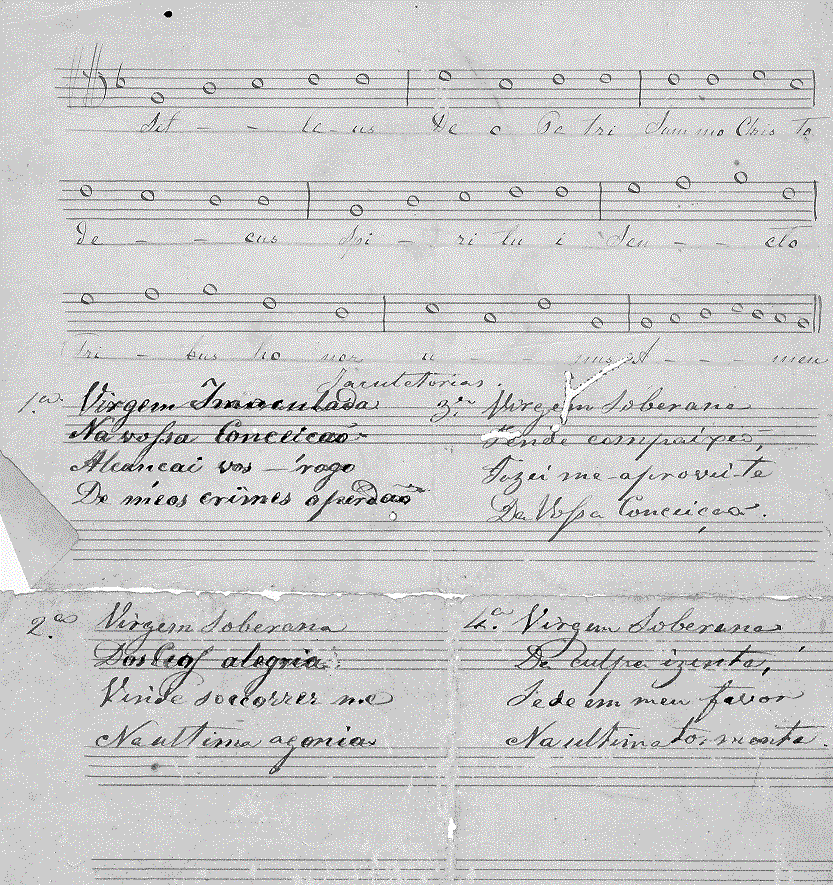 Sit - - la-us De o Pa tri Sum mo Chris to
de - - cus Spi - ri tu i San - - cto
Tri - bus ho nor u - - nus A - - - men
Jaculatorias.
1ª Virgem Immaculada
Na vossa Conceicaõ
Alcancai vos - rogo
De meos crimes operdaõ
3ª Virgem Soberana
Tende compaixaõ,
Fazei me-aprovei-te
Da Vossa Conceiçaõ.
2ª Virgem Soberana
Dos Ceos alegria
Vinde soccorrer me
Na ultima agonia
4.ª Virgem Soberana
De culpa izenta,
Sede em meu favor
Na ultima tormenta.